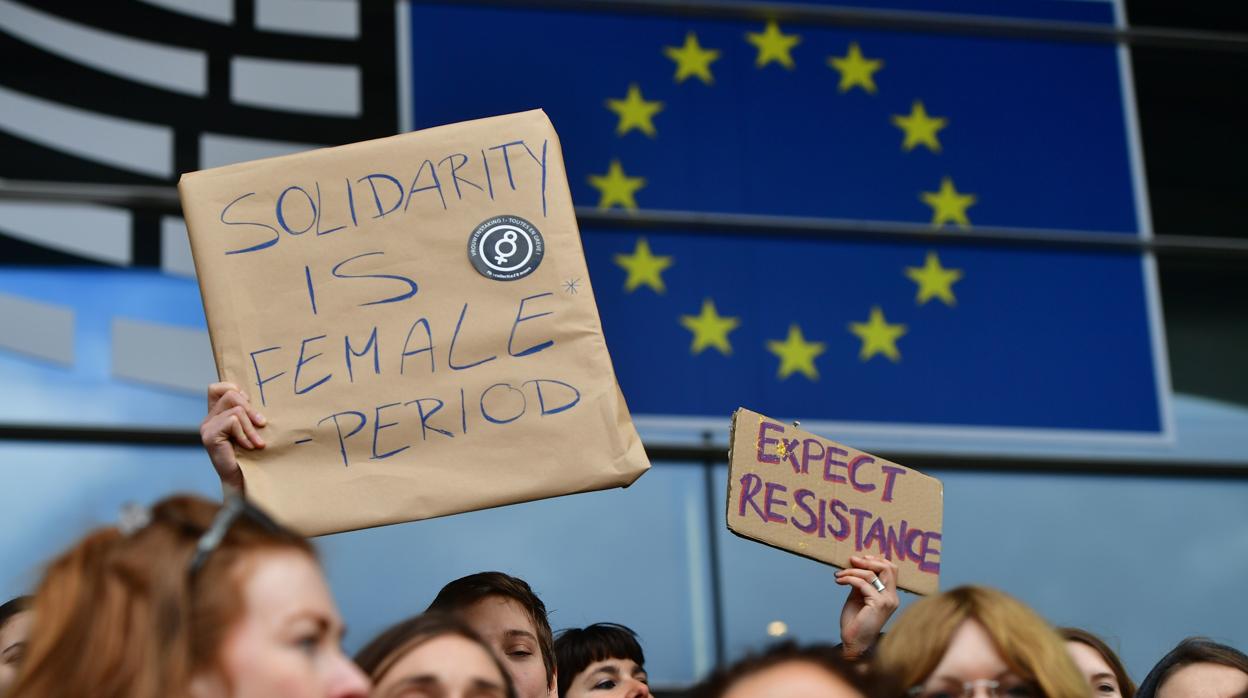 SOLIDARITY
IS
FEMALE*
-PERIOD
VROUWENSTAKING ! - TOUTES EN GRÈVE !
EXPECT
RESISTANCE